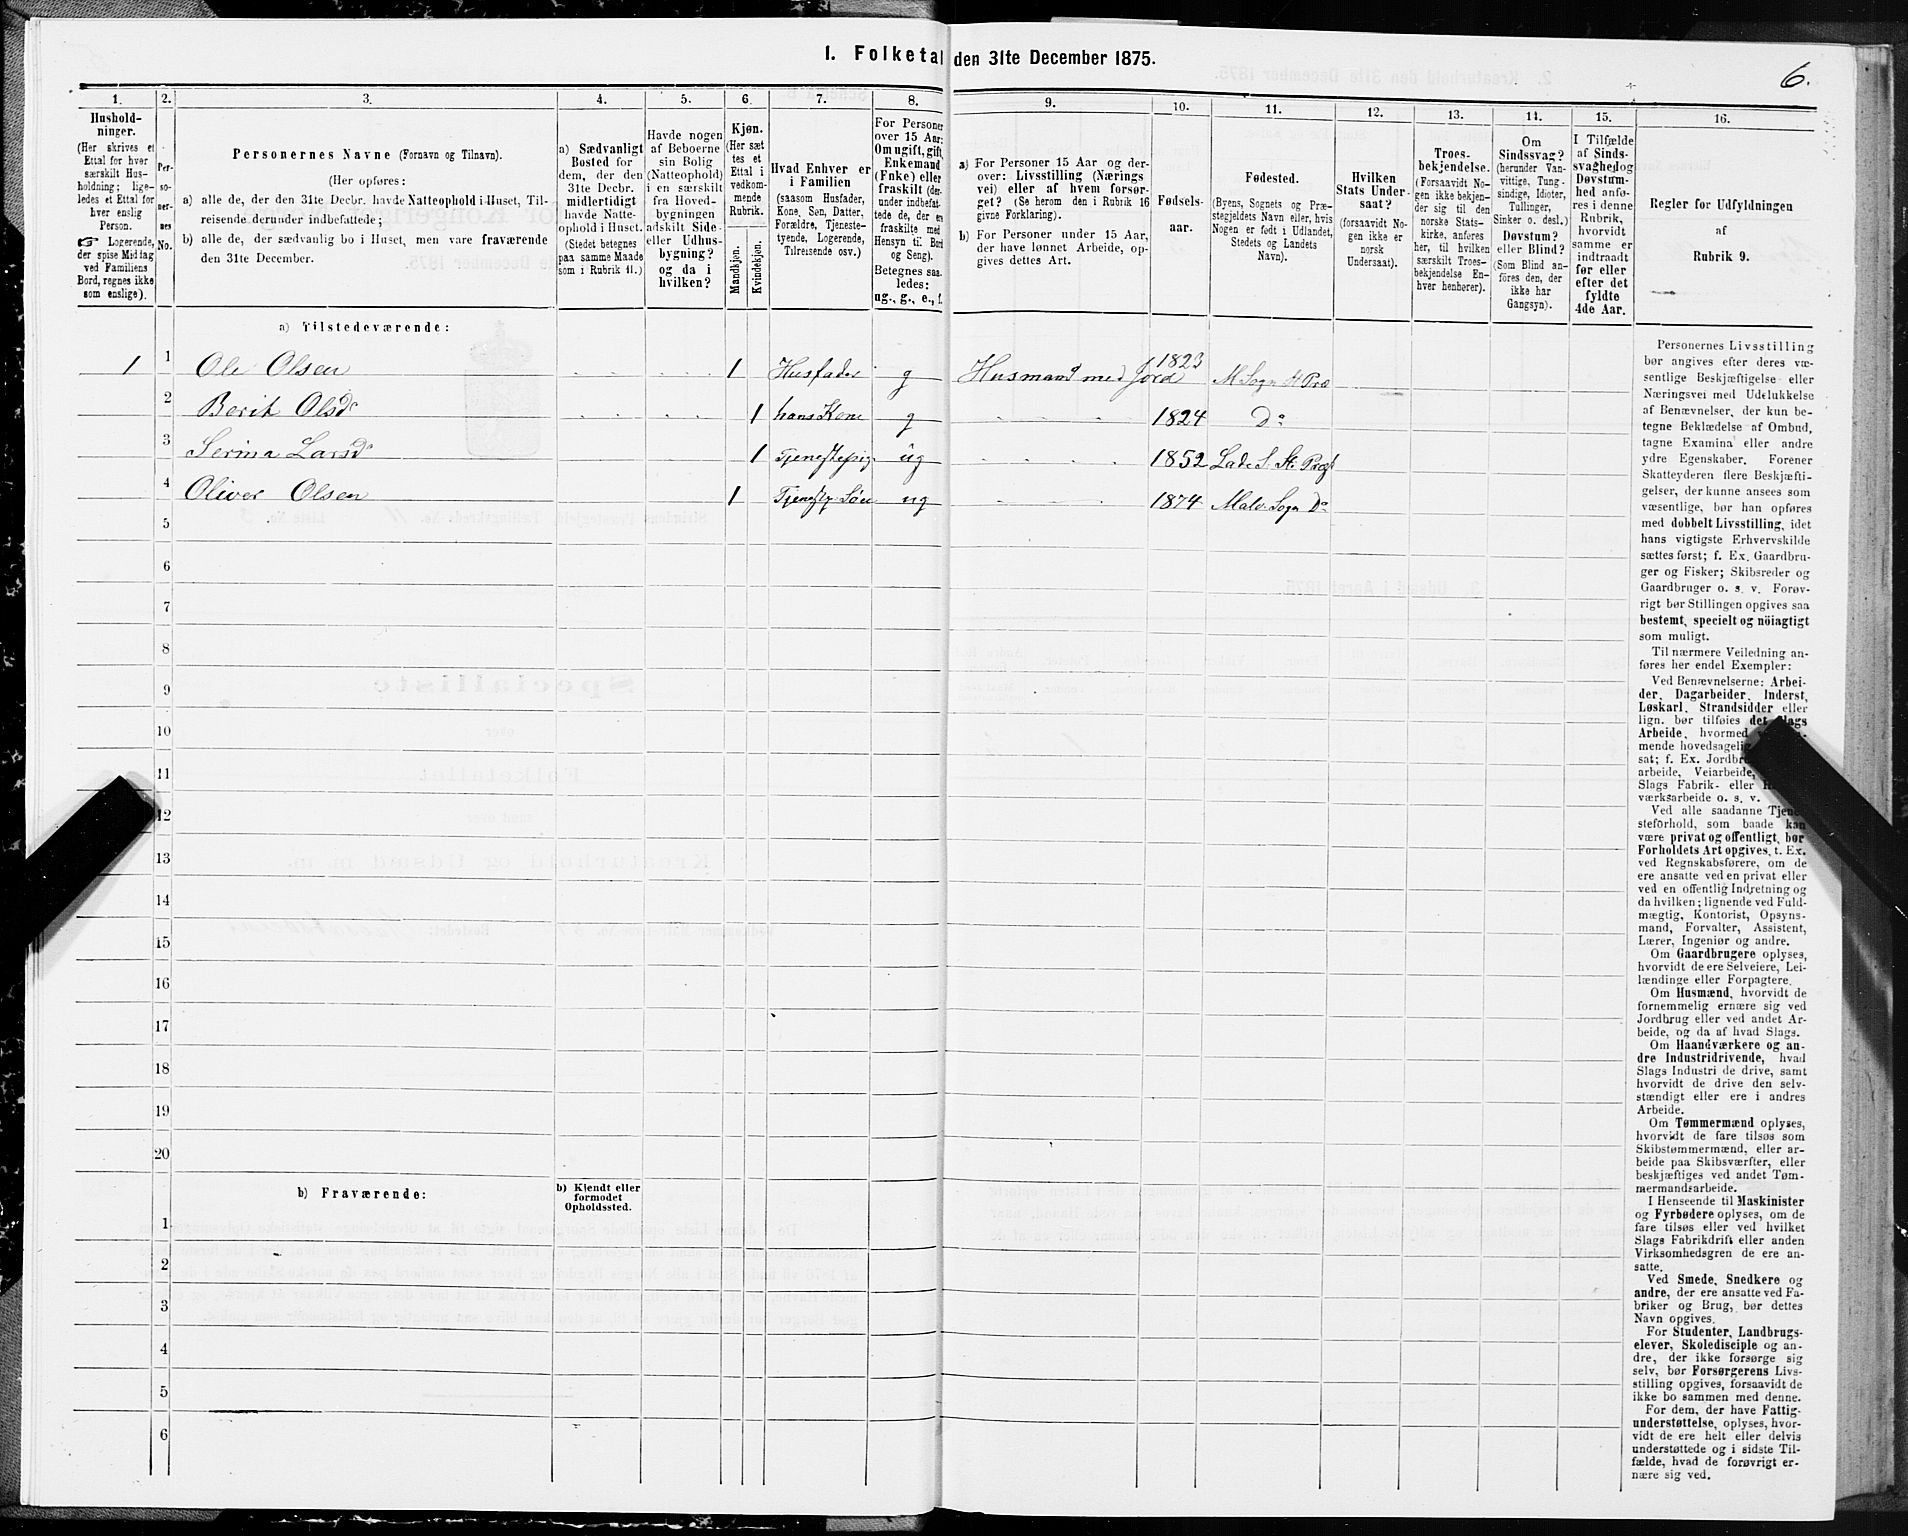 I. Folketal den 31te December 1875.
6.
1.
Hushold-
ninger.
(Her skrives et
Ettal for hver
særskilt Hus-
holdning; lige-
ledes et Ettal for
hver enslig
Person.
☞ Logerende,
der spise Middag
ved Familiens
Bord, regnes ikke
som enslige).
2.
Per-
so-
ner-
nes
No.
3.
Personernes Navne (Fornavn og Tilnavn).
(Her opføres:
a) alle de, der den 31te Decbr. havde Natteophold i Huset, Til-
reisende derunder indbefattede;
b) alle de, der sædvanlig bo i Huset, men vare fraværende
den 31te December.
4.
a) Sædvanligt
Bosted for
dem, der den
31te Decbr.
midlertidigt
havde Natte-
ophold i Huset.
(Stedet betegnes
paa samme Maade
som i Rubrik 11.)
5.
Havde nogen
af Beboerne
sin Bolig
(Natteophold)
i en særskilt
fra Hoved-
bygningen
adskilt Side-
eller Udhus-
bygning?
og da i
hvilken?
6.
Kjøn.
(Her sæt
tes et
Ettal i
vedkom-
mende
Rubrik.
Mandkjøn.
Kvindekjøn.
7.
Hvad Enhver er
i Familien
(saasom Husfader,
Kone, Søn, Datter,
Forældre, Tjeneste-
tyende, Logerende,
Tilreisende osv.)
8.
For Personer
over 15 Aar:
Om ugift, gift,
Enkemand
(Enke) eller
fraskilt (der-
under indbefat-
tede de, der ere
fraskilte med
Hensyn til Bord
og Seng).
Betegnes saa-
ledes:
ug., g., e., f.
9.
a) For Personer 15 Aar og der-
over: Livsstilling (Nærings
vei) eller af hvem forsør-
get? (Se herom den i Rubrik 16
givne Forklaring).
b) For Personer under 15 Aar,
der have lønnet Arbeide, op-
gives dettes Art.
10.
Fødsels-
aar.
11.
Fødested.
(Byens, Sognets og Præ-
stegjeldets Navn eller, hvis
Nogen er født i Udlandet,
Stedets og Landets
Navn).
12.
Hvilken
Stats Under-
saat?
(forsaavidt No-
gen ikke er
norsk
Undersaat).
13.
Troes-
bekjendelse.
(Forsaavidt No-
gen ikke bekjen-
der sig til den
norske Stats-
kirke, anføres
her, til hvilken
særskilt Troes-
bekjendelse En-
hver henhører).
14.
Om
Sindssvag?
(herunder Van-
vittige, Tung-
sindige, Idioter,
Tullinger,
Sinker o. desl.)
Døvstum?
eller Blind?
(Som Blind an-
føres den, der
ikke har
Gangsyn).
15.
I Tilfælde
af Sinds-
svaghed og
Døvstum-
hed anfø-
res i denne
Rubrik,
hvorvidt
samme er
indtraadt
før eller
efter det
fyldte
4de Aar.
16.
Regler for Udfyldningen
af
Rubrik 9.
a) Tilstedeværende:
1 1 Ole Olsen 1 Husfader g Husmand med Jord 1823 M Sogn St Præ
2 Berit Olsd 1 hans Kone g 1824 Do
3 Serina Larsd 1 Tjenestepig ug 1852 Lade S. St. Præst
4 Oliver Olsen 1 Tjenestp Søn ug 1874 Malv. Sogn Do
5
6
7
8
9
10
11
12
13
14
15
16
17
18
19
20
b) Fraværende:
b) Kjendt eller
formodet
Opholdssted.
1
2
3
4
5
6
Personernes Livsstilling
bør angives efter deres væ-
sentlige Beskjæftigelse eller
Næringsvei med Udelukkelse
af Benævnelser, der kun be-
tegne Beklædelse af Ombud,
tagne Examina eller andre
ydre Egenskaber. Forener
Skatteyderen flere Beskjæfti-
gelser, der kunne ansees som
væsentlige, bør han opføres
med dobbelt Livsstilling, idet
hans vigtigste Erhvervskilde
sættes først; f. Ex. Gaardbru-
ger og Fisker; Skibsreder og
Gaardbruger o. s. v. Forøv-
rigt bør Stillingen opgives saa
bestemt, specielt og nöiagtigt
som muligt.
Til nærmere Veiledning an-
føres her endel Exempler:
Ved Benævnelserne: Arbei-
der, Dagarbeider, Inderst,
Løskarl, Strandsidder eller
lign. bør tilføies det Slags
Arbeide, hvormed
mende hovedsagelig
sat; f. Ex. Jordbru
arbeide, Veiarbeide,
Slags Fabrik- eller
værksarbeide o. s. v.
Ved alle saadanne Tjene-
steförhold, som baade kan
være privat og offentligt, bør
Forholdets Art opgives, t. Ex.
ved Regnskabsførere, om de
ere ansatte ved en privat eller
ved en offentlig Indretning og
da hvilken; lignende ved Fuld-
mægtig, Kontorist, Opsyns-
mand, Forvalter, Assistent,
Lærer, Ingeniør og andre.
Om Gaardbrugere oplyses,
hvorvidt de ere Selveiere, Lei-
lændinge eller Forpagtere.
Om Husmænd, hvorvidt de
fornemmelig ernære sig ved
Jordbrug eller ved andet Ar-
beide, og da af hvad Slags.
Om Haandværkere og an-
dre Industridrivende, hvad
Slags Industri de drive, samt
hvorvidt de drive den selv-
stændigt eller ere i andres
Arbeide.
Om Tømmermænd oplyses,
hvorvidt de fare tilsøs som
Skibstømmermænd, eller ar-
beide paa Skibsværfter, eller
beskjæftiges ved andet Tøm-
mermandsarbeide.
I Henseende til Maskinister
og Fyrbødere oplyses, om de
fare tilsøs eller ved hvilket
Slags Fabrikdrift eller anden
Virksomhedsgren de ere an-
satte.
Ved Smede, Snedkere og
andre, der ere ansatte ved Fa-
briker og Brug, bør dettes
Navn opgives.
For Studenter, Landbrugs-
elever, Skoledisciple og an-
dre, der ikke forsørge sig
selv, bør Forsørgerens Livs-
stilling opgives, forsaavidt de
ikke bo sammen med denne.
For dem, der have Fattig-
understøttelse, oplyses, hvor-
vidt de ere helt eller delvis
understøttede og i sidste Til-
fælde, hvad de forøvrigt er-
nære sig ved.